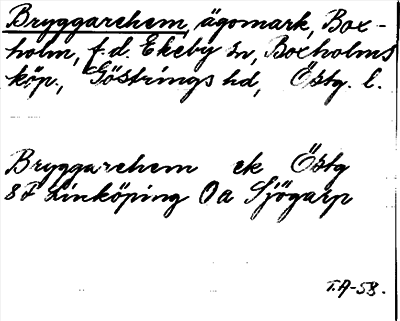 Bryggarehem, ägomark, Box-
holm, f.d. Ekeby sn, Boxholms
köp., Göstrings hd, Östg. l.
Bryggarehem ek Östg
8F Linköping 0a Sjögarp
T.A-58.